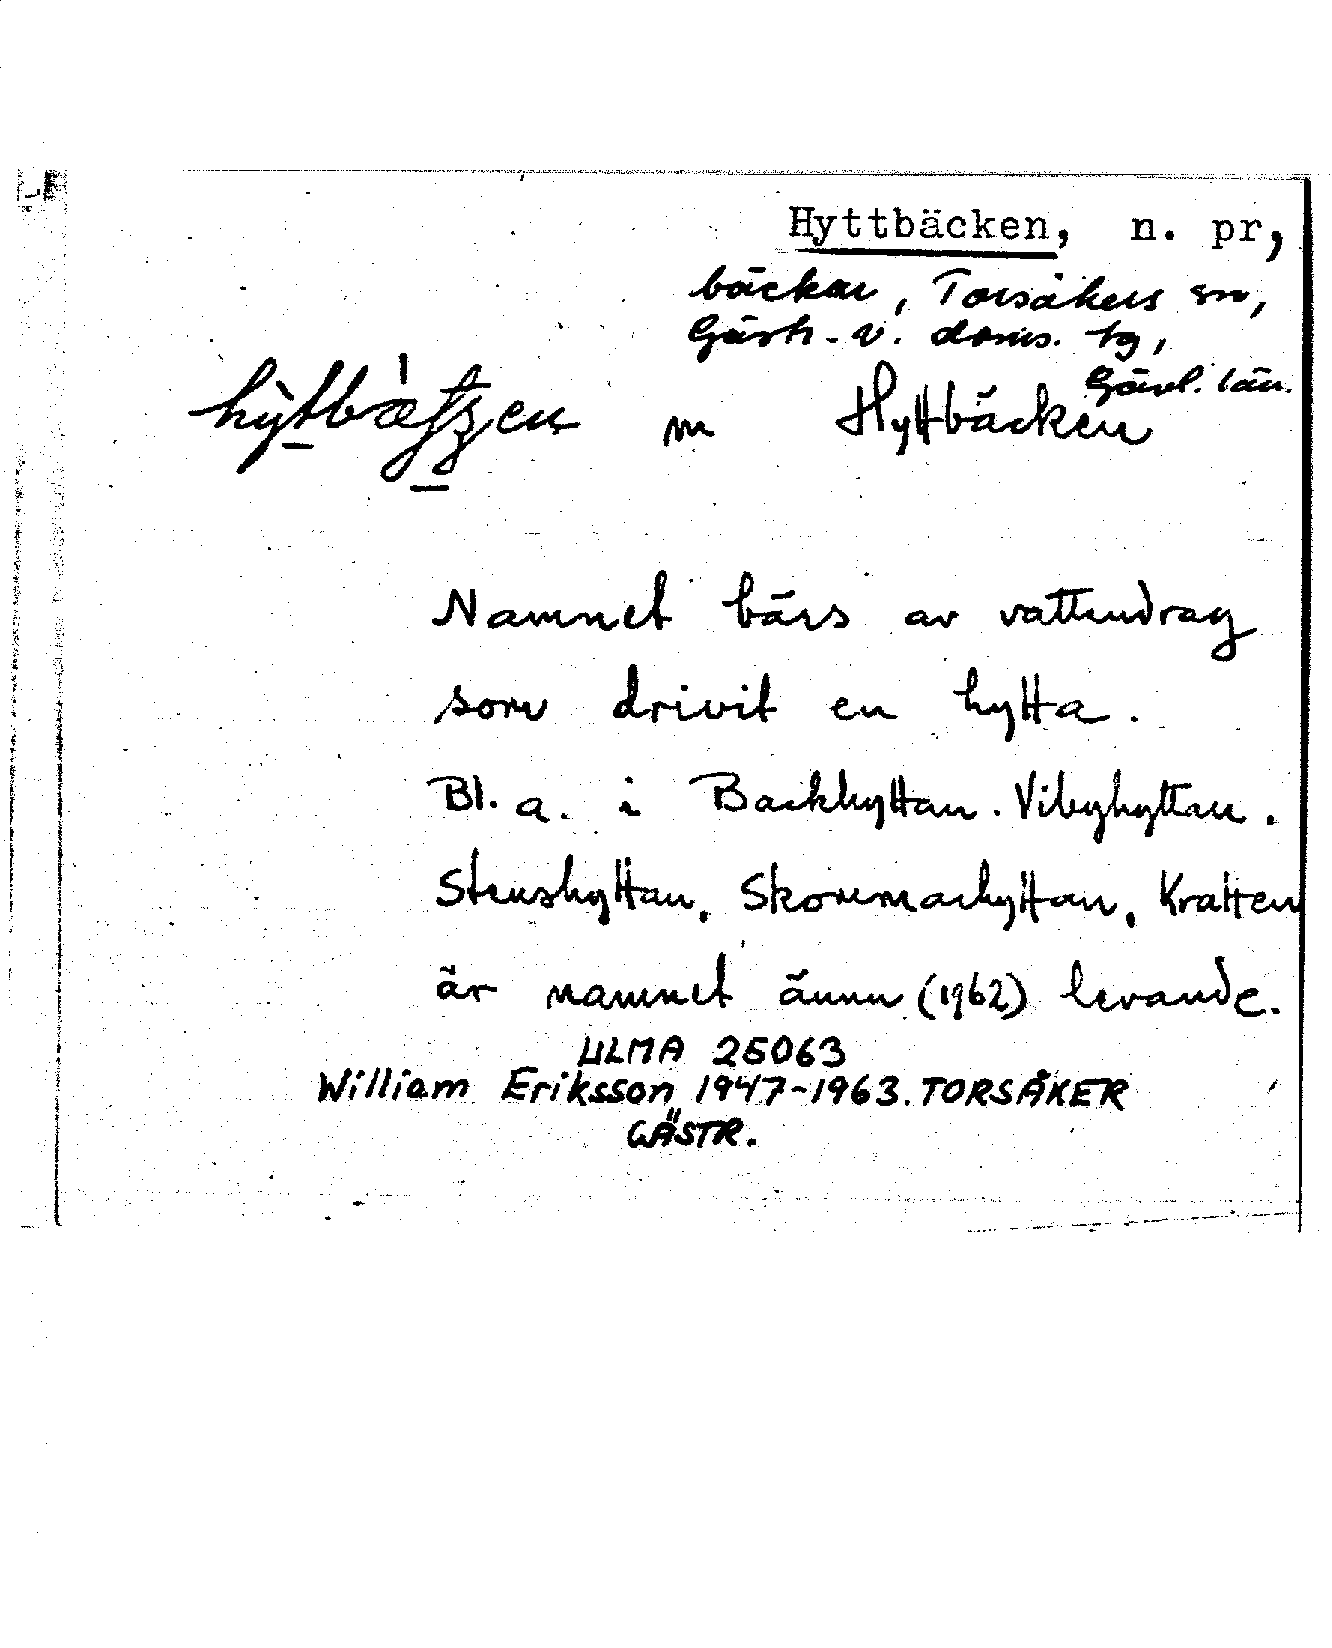 Hyttbäcken, n. pr,
bäckar, Torsåkers sn,
Gästr. v. doms. tg,
Gävl. län.
m Hyttbäcken
Namnet bärs av vattendrag
som drivit en hytta.
Bl. a. i Backhyttan. Vibyhyttan.
Stenshyttan, Skommarhyttan, Kratten
är namnet ännu (1962) levande.
ULMA 25063
William Eriksson 1947-1963. TORSÅKER
GÄSTR.